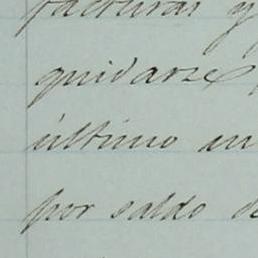 facturas y
quidarse
último en
por saldo de